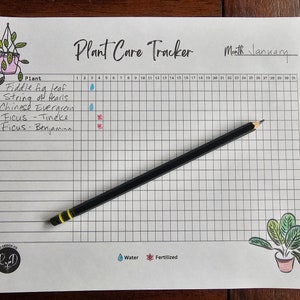 Plant Care Tracker
Month January
Plant 1 2 3 4 5 6 7 8 9 10 11 12 13 14 15 16 17 18 19 20 21 22 23 24 25 26 27 28 29 30 31
Fiddle fig leaf
String of Pearls
Chinese Evergreen
Ficus - Tineke
Ficus - Benjamina
Water Fertilized